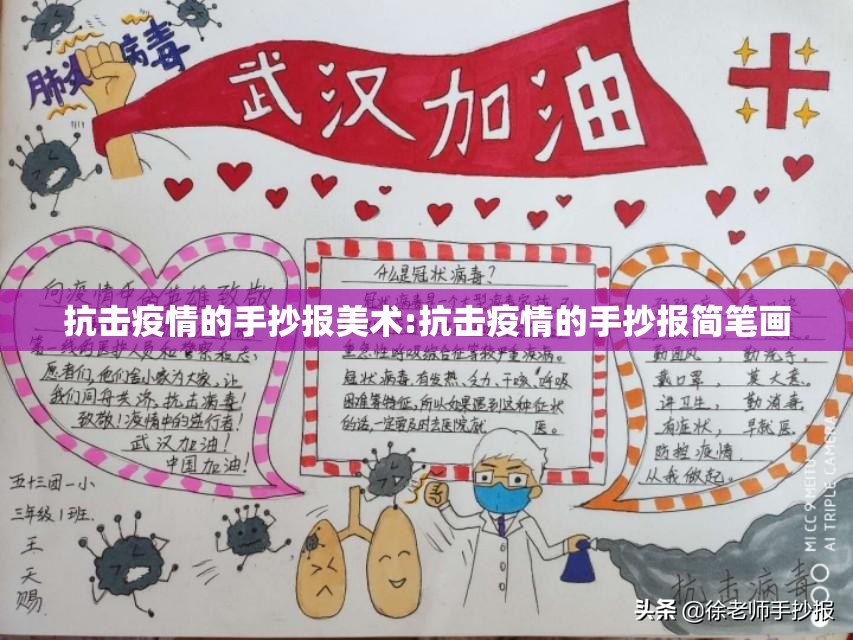 肺炎病毒
武汉加油
向疫情中的英雄致敬
什么是冠状病毒?
抗击疫情的手抄报美术:抗击疫情的手抄报简笔画
第一线的医护人员和警察、志
愿者们,他们舍小家为大家,让
我们同舟共济,抗击病毒!
致敬!疫情中的逆行者!
武汉加油!
中国加油!
重急性呼吸综合征等较严重疾病。
冠状病毒有发热、乏力、干咳、呼吸
困难等特征,所以如果遇到这种症状
的话,一定要及时去医院就 医。
勤通风, 勤洗手。
戴口罩, 莫大意。
讲卫生, 勤消毒
有症状, 早就医
防控疫情,
从我做起。
五十三团一小
三年级1班.
王
天
赐
抗击病毒
MI CC 9 MEITU
AI TRIPLE CAMERA
头条 @徐老师手抄报